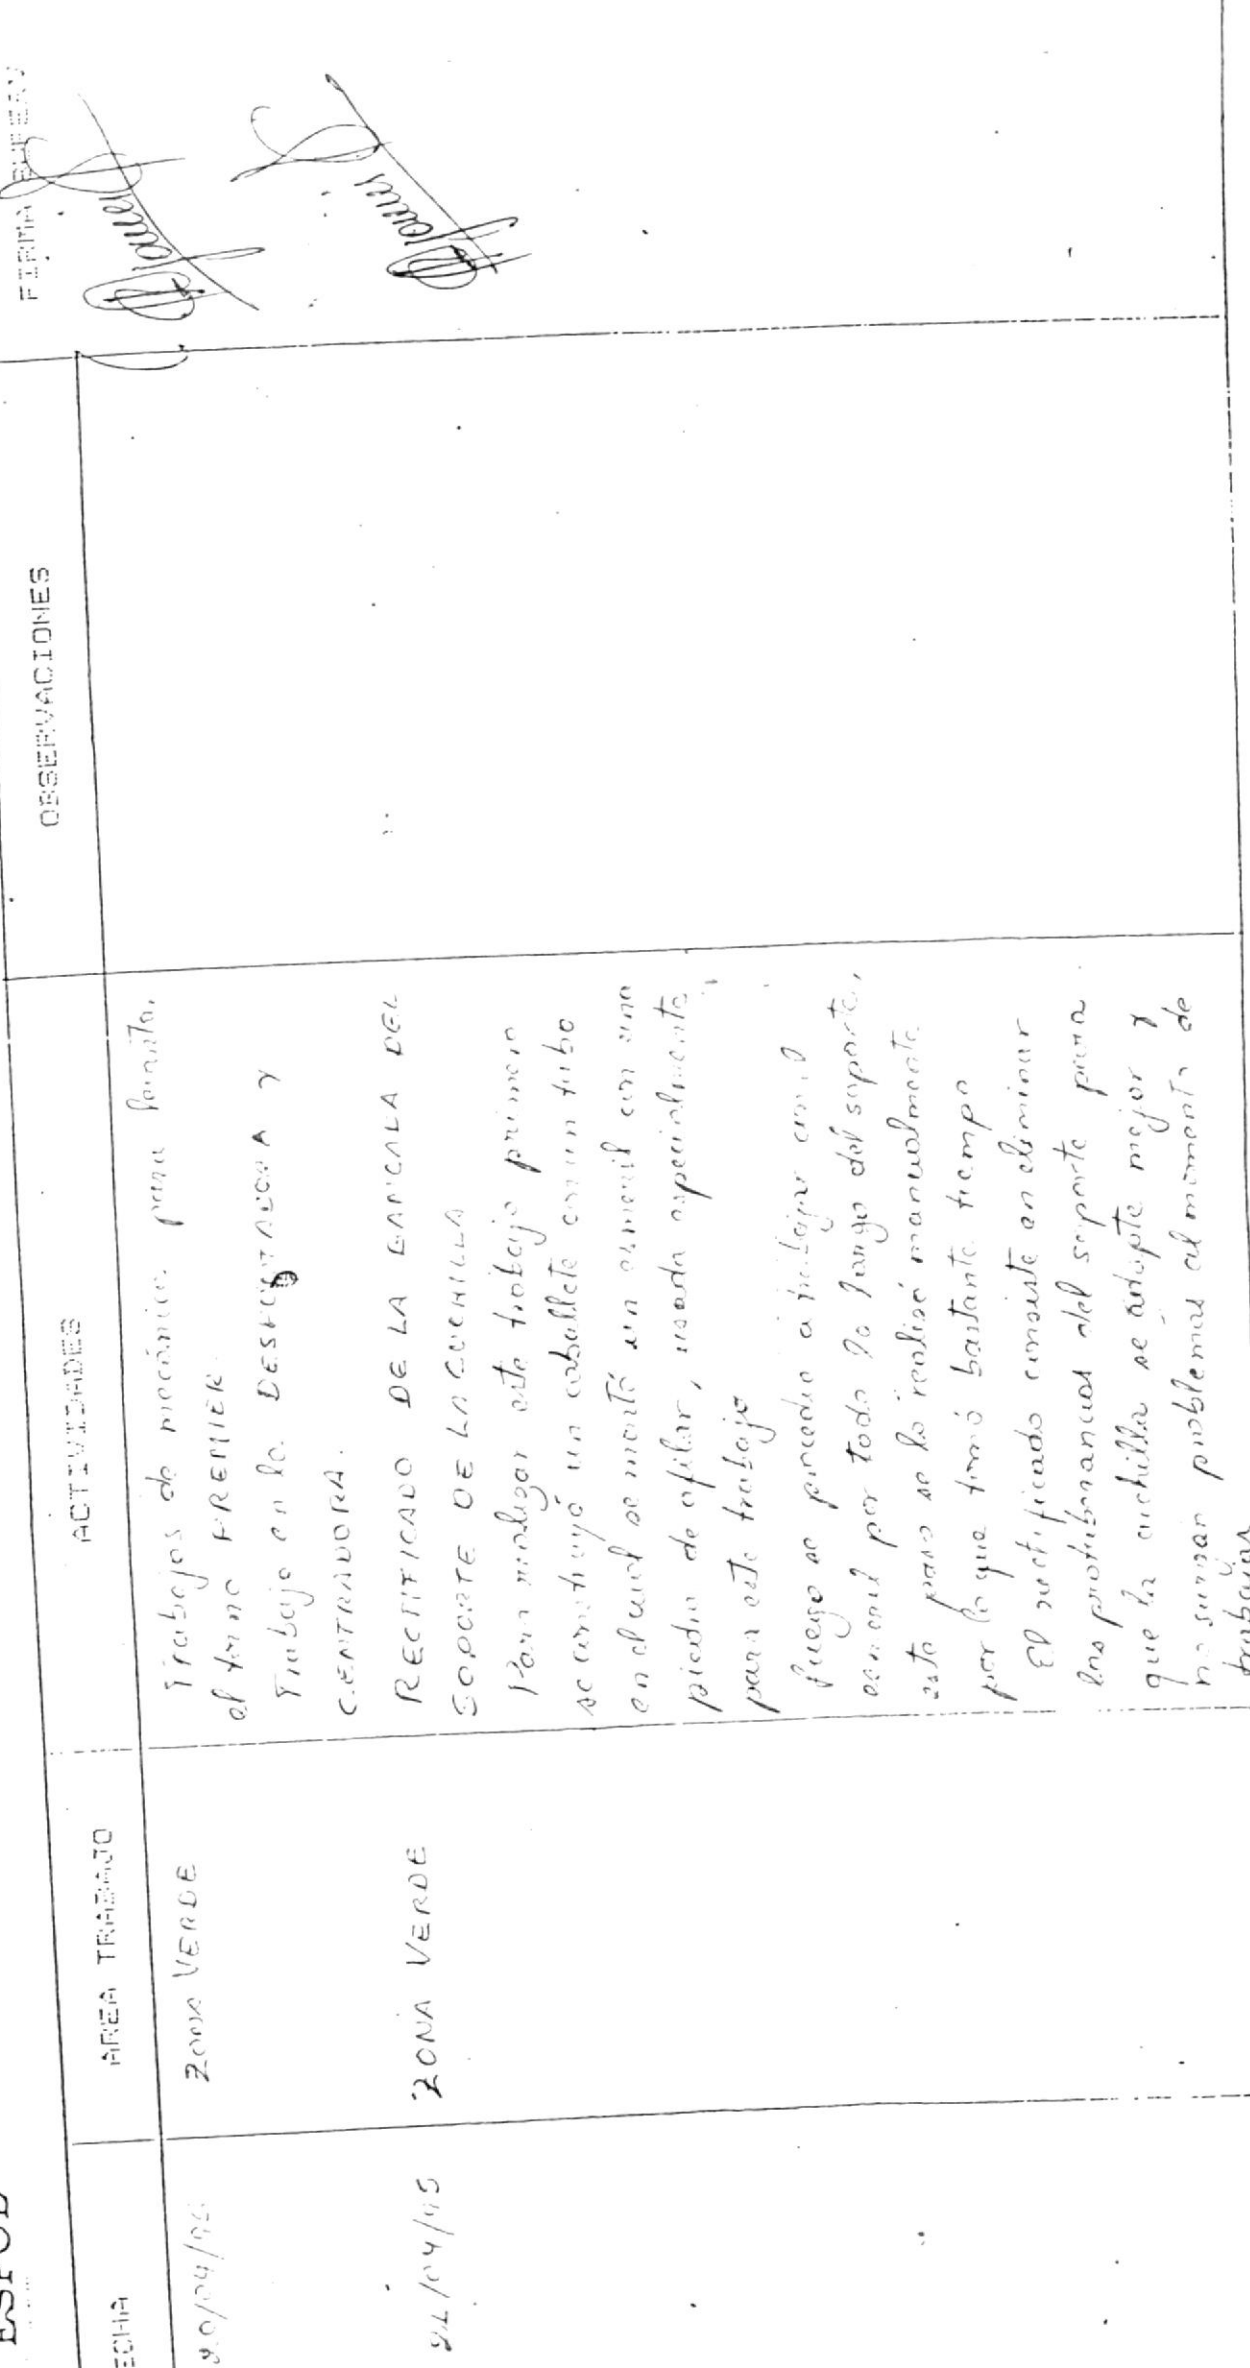 ESPOL
ECHA
AREA TRABAJO
ACTIVIDADES
OBSERVACIONES
FIRMA SUPERV
20/04/95
ZONA VERDE
Trabajos de mecánica para
el torno PREMIER.
Trabajo en la Y
CENTRADORA.
21/04/95
ZONA VERDE
RECTIFICADO DE LA BANCADA DEL
SOPORTE DE LA CUCHILLA
Para realizar este trabajo primero
se construyó un caballete con un tubo
en el cual se montó un esmeril con una
piedra de afilar, usada especialmente
para este trabajo
Luego se procedio a trabajar con el
esmeril por todo lo largo del soporte,
este paso se lo realisó manualmente
por lo que tomó bastante tiempo
El rectificado consiste en eliminar
las protuberancias del soporte para
que la cuchilla se adapte mejor y
no surjan problemas al momento de
trabajar